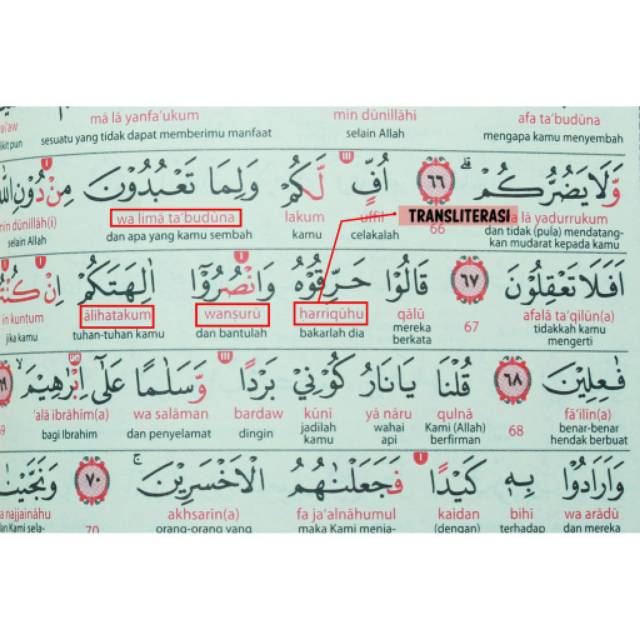 afa ta'budūna min dūnillāhi mā lā yanfa'ukum
mengapa kamu menyembah selain Allah sesuatu yang tidak dapat memberimu manfaat
وَّلَا يَضُرُّكُمْ ۗ ٦٦ اُفٍّ لَّكُمْ وَلِمَا تَعْبُدُوْنَ مِنْ دُوْنِ اللّٰهِ
lā yadurrukum 66 uffil lakum wa limā ta'budūna min dūnillāh(i)
TRANSLITERASI
dan tidak (pula) mendatang- celakalah kamu dan apa yang kamu sembah selain Allah
kan mudarat kepada kamu
اَفَلَا تَعْقِلُوْنَ ٦٧ قَالُوْا حَرِّقُوْهُ وَانْصُرُوْٓا اٰلِهَتَكُمْ اِنْ كُنْتُمْ
afalā ta'qilūn(a) 67 qālū ḥarriqūhu wanṣurū ālihatakum in kuntum
tidakkah kamu mereka bakarlah dia dan bantulah tuhan-tuhan kamu jika kamu
mengerti berkata
فٰعِلِيْنَ ٦٨ قُلْنَا يٰنَارُ كُوْنِيْ بَرْدًا وَّسَلٰمًا عَلٰٓى اِبْرٰهِيْمَ ٦٩
fā'ilīn(a) 68 qulnā yā nāru kūnī bardaw wa salāman 'alā ibrāhīm(a)
benar-benar Kami (Allah) wahai jadilah dingin dan penyelamat bagi Ibrahim
hendak berbuat berfirman api kamu
وَاَرَادُوْا بِهٖ كَيْدًا فَجَعَلْنٰهُمُ الْاَخْسَرِيْنَ ۚ ٧٠ وَنَجَّيْنٰهُ
wa arādū bihī kaidan fa ja'alnāhumul akhsarīn(a) 70 najjaināhu
dan mereka terhadap (dengan) maka Kami menja- orang-orang yang dan Kami sela-